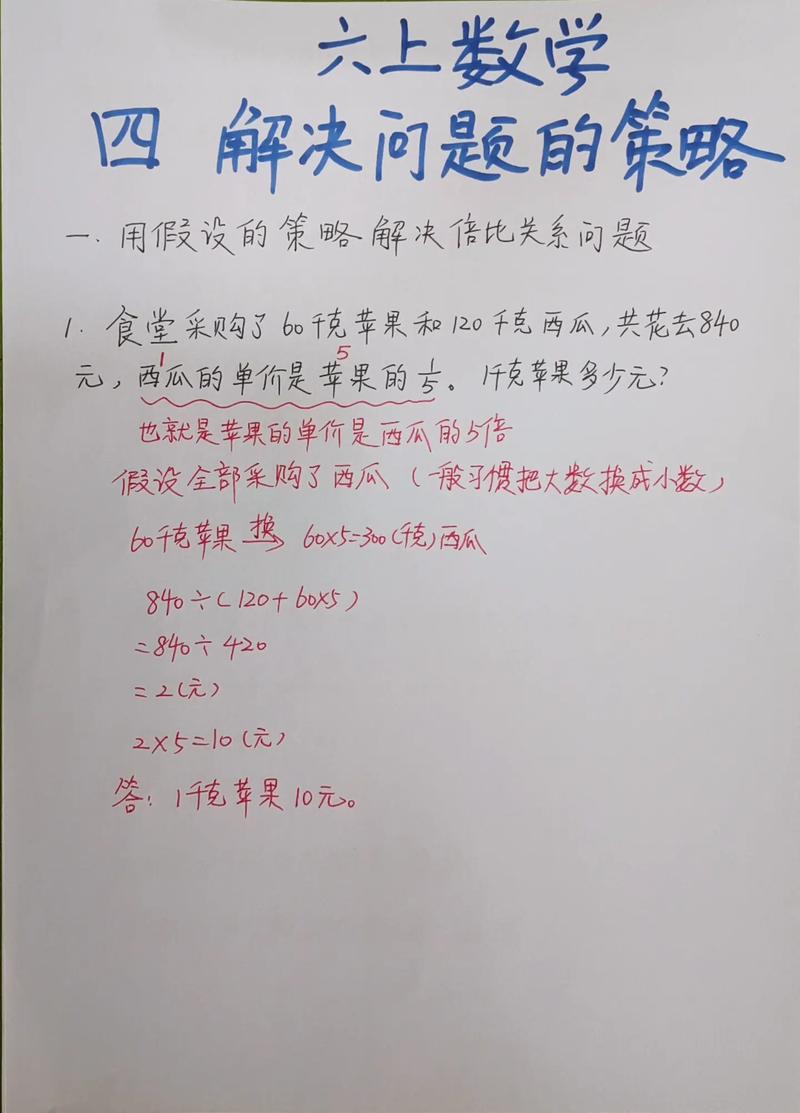 六上数学
四 解决问题的策略
一.用假设的策略解决倍比关系问题
1. 食堂采购了60千克苹果和120千克西瓜,共花去840
1 5
元,西瓜的单价是苹果的1/5。1千克苹果多少元?
也就是苹果的单价是西瓜的5倍
假设全部采购了西瓜(一般习惯把大数换成小数)
60千克苹果 换→ 60×5=300(千克)西瓜
840÷(120+60×5)
=840÷420
=2(元)
2×5=10(元)
答:1千克苹果10元。